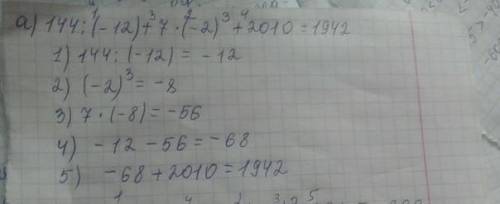 а) 144:(-12)+7·(-2)³+2010=1942
1) 144:(-12)= -12
2) (-2)³= -8
3) 7·(-8)= -56
4) -12-56=-68
5) -68+2010=1942